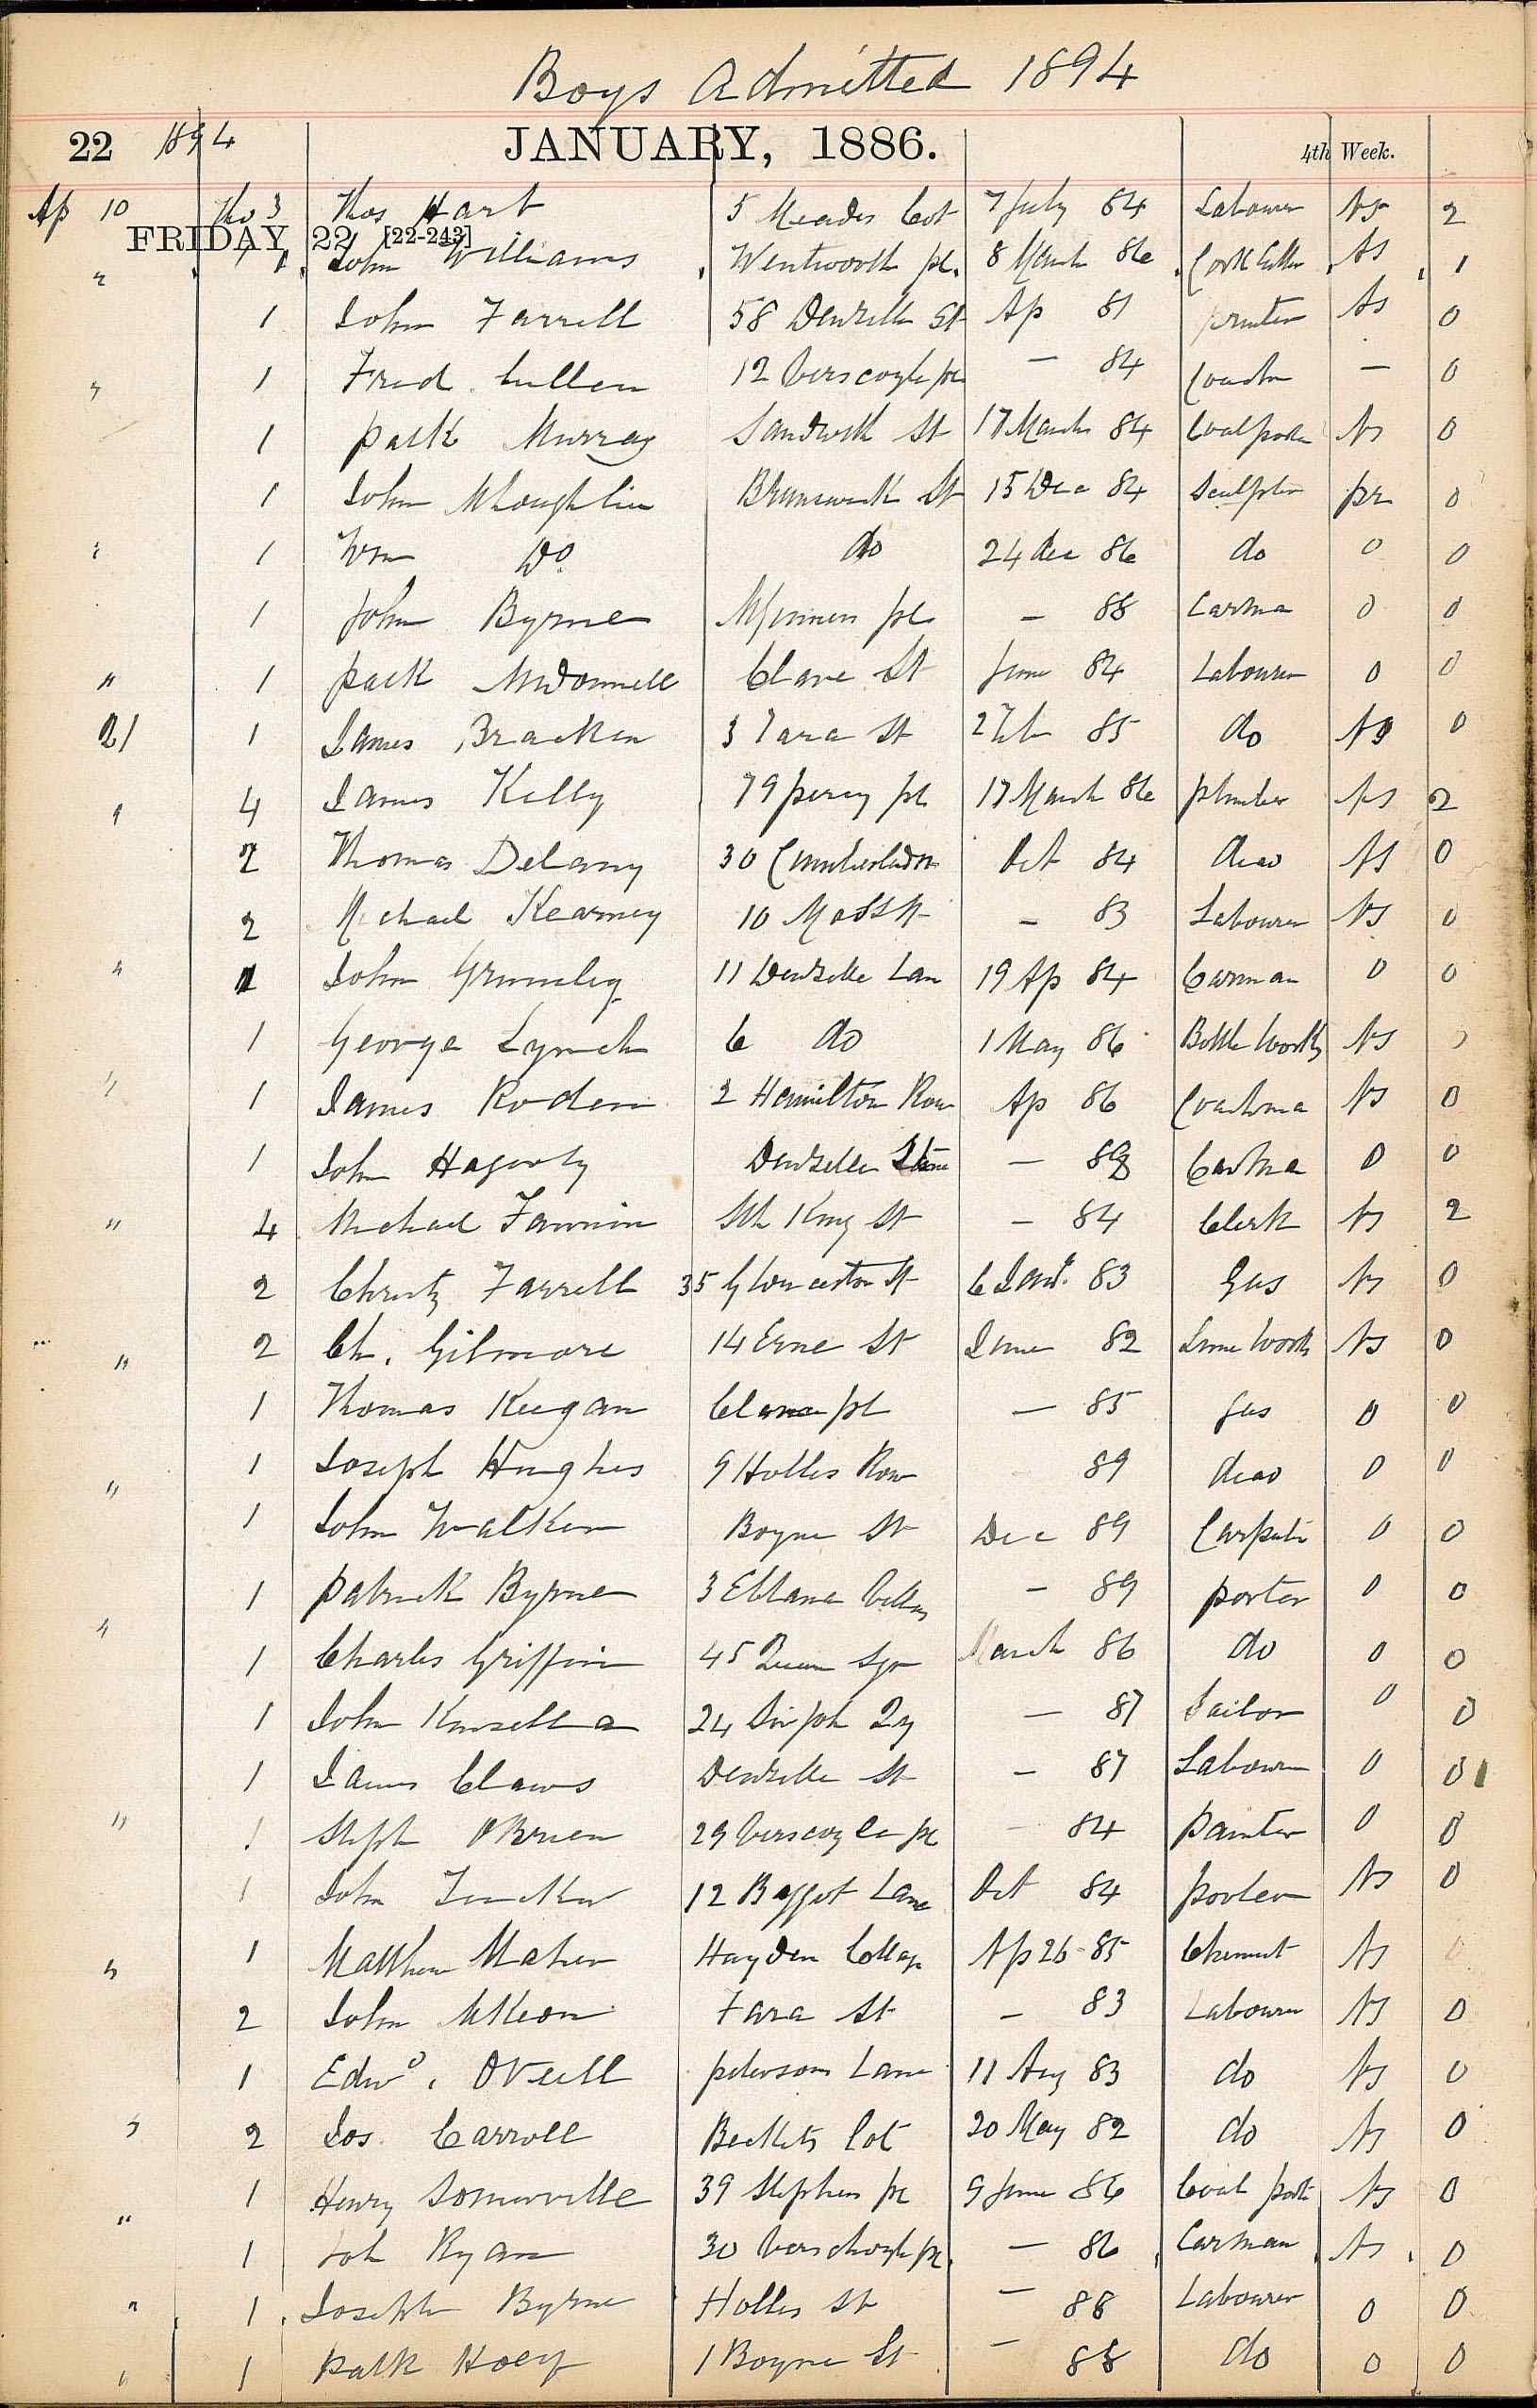 Boys Admitted 1894
22 1894 JANUARY, 1886. 4th Week.
Ap 10 No 3 Thos Hart 5 Meades Cot 7 July 84 Labourer NS 2
FRIDAY 22 [22-243]
" 1 John Williams Wentworth pl. 8 March 86 Cork Cutter NS 1
1 John Farrell 58 Denzille St Ap 81 printer NS 0
" 1 Fred. Cullen 12 Verscoyle pl — 84 — 0
1 Patk Murray Sandwith St 17 March 84 Coal porter NS 0
1 John McLoughlin Brunswick St 15 Dec 84 Sculptor pr 0
" 1 Wm Do do 24 dec 86 do 0 0
1 John Byrne pl — 88 Carman 0 0
" 1 Patk McDonnell Clare St June 84 Labourer 0 0
21 1 James Bracken 3 Tara St 2 Feb 85 do NS 0
" 4 James Kelly 79 percy pl 17 March 86 plumber NS 2
2 Thomas Delany 30 Cumberland St Oct 84 dead NS 0
2 Michael Kearney 10 Moss St — 83 Labourer NS 0
" 1 John Grumley 11 Denzille Lan 19 Ap 84 Carman 0 0
1 George Lynch 6 do 1 May 86 Bottle Works NS 0
" 1 James Roden 2 Hamilton Row Ap 86 Coachma NS 0
1 John Hagerty Denzille Lane — 88 Carma 0 0
" 4 Michael Fannin Sth King St — 84 Clerk NS 2
2 Christy Farrell 35 Gloucester St 6 Jany. 83 Gas NS 0
" 2 Ch. Gilmore 14 Erne St June 82 Lime Works NS 0
1 Thomas Keegan Clare pl — 85 gas 0 0
1 Joseph Hughes 9 Holles Row 89 dead 0 0
" 1 John Walker Boyne St Dec 89 Carpenter 0 0
1 Patrick Byrne 3 Eblana Villas — 89 porter 0 0
" 1 Charles Griffin 45 Queen Sqr March 86 do 0 0
1 John Kinsella 24 Sir Joh Qy — 87 Sailor 0 0
1 James Claws Denzille St — 87 Labourer 0 0
" 1 Steph O'Brien 29 Verscoyle pl — 84 Painter 0 0
1 John Tucker 12 Baggot Lane Oct 84 porter NS 0
" 1 Matthew Maher Hayden Cottage Ap 26 - 85 Chemist NS 0
2 John McKeon Tara St — 83 Labourer NS 0
1 Edwd. O'Neill petersons Lane 11 Aug 83 do NS 0
" 2 Jos. Carroll Becketts Cot 20 May 82 do NS 0
1 Henry Somerville 39 Stephens pl 9 June 86 Coal port NS 0
" 1 Joh Ryan 30 Verschoyle pl — 86 Carman NS 0
" 1 Joseph Byrne Holles St — 88 Labourer 0 0
" 1 Patk Hoey 1 Boyne St — 88 do 0 0